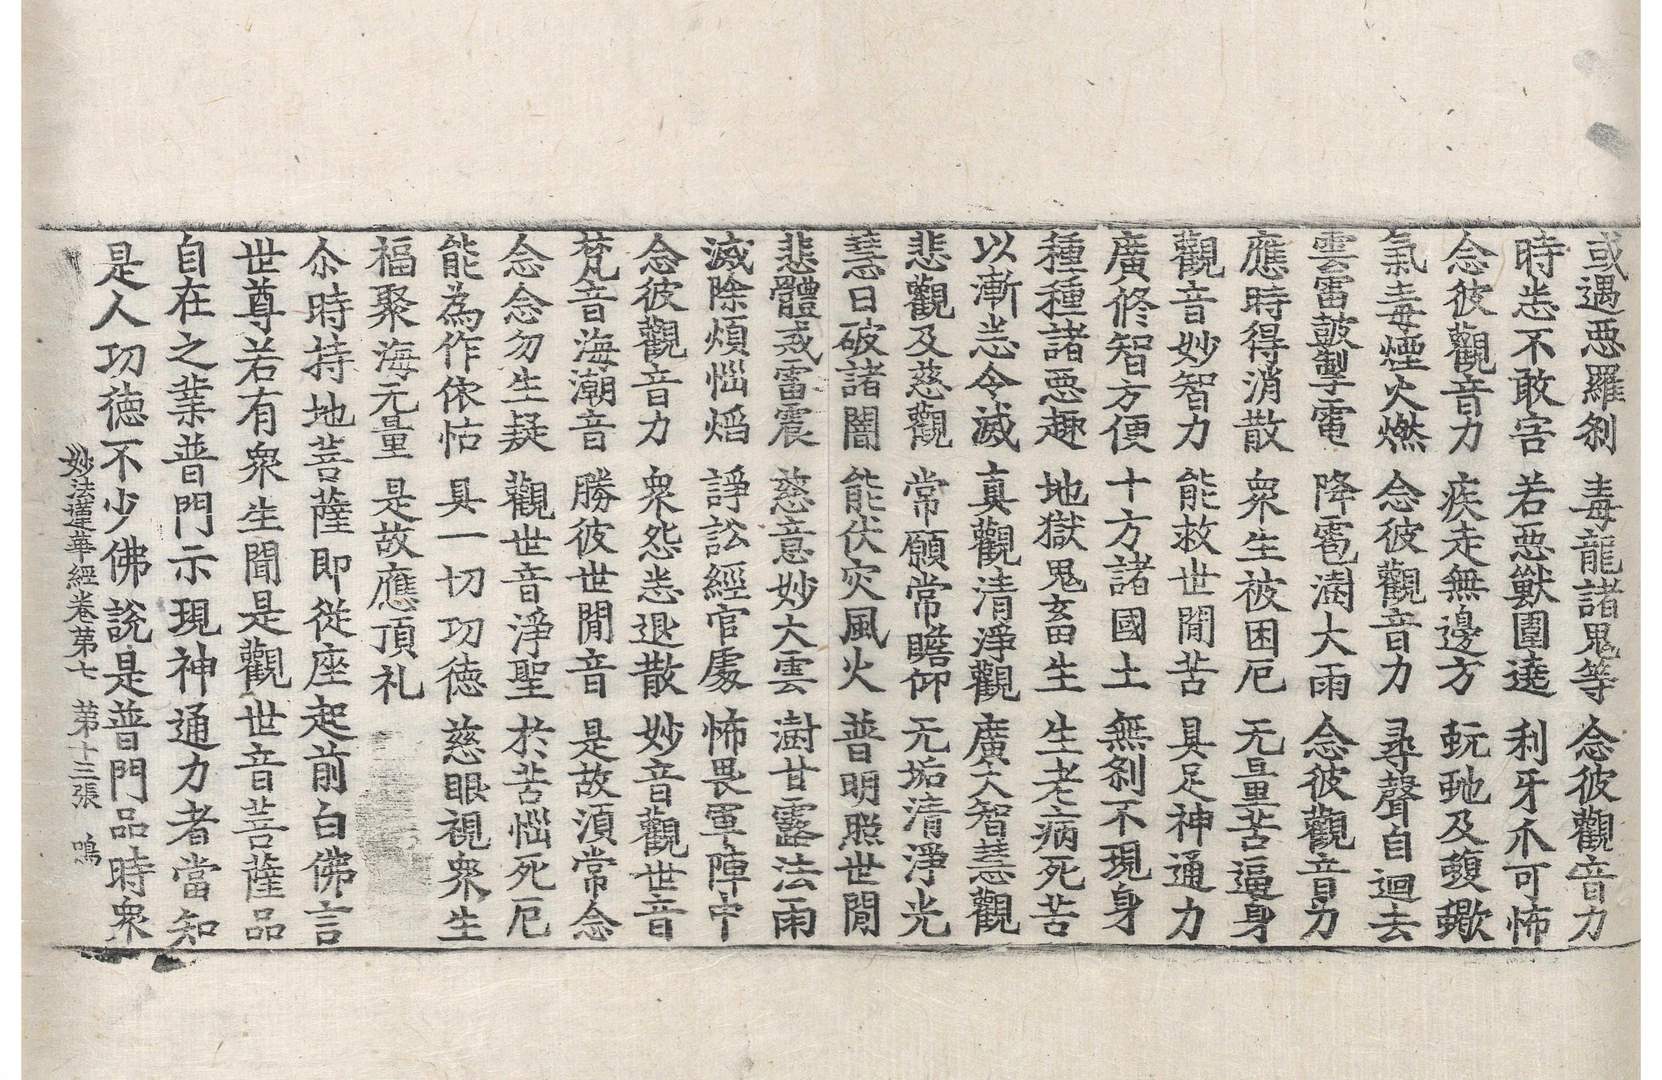 或遇惡羅剎　毒龍諸鬼等　念彼觀音力
時悉不敢害　若惡獸圍遶　利牙爪可怖
念彼觀音力　疾走無邊方　蚖虵及蝮蠍
氣毒煙火燃　念彼觀音力　尋聲自迴去
雲雷鼓掣電　降雹澍大雨　念彼觀音力
應時得消散　眾生被困厄　无量苦逼身
觀音妙智力　能救世閒苦　具足神通力
廣修智方便　十方諸國土　無剎不現身
種種諸惡趣　地獄鬼畜生　生老病死苦
以漸悉令滅　真觀清淨觀　廣大智慧觀
悲觀及慈觀　常願常瞻仰　无垢清淨光
慧日破諸闇　能伏灾風火　普明照世閒
悲體戒雷震　慈意妙大雲　澍甘露法雨
滅除煩惱焰　諍訟經官處　怖畏軍陣中
念彼觀音力　眾怨悉退散　妙音觀世音
梵音海潮音　勝彼世閒音　是故須常念
念念勿生疑　觀世音淨聖　於苦惱死厄
能為作依怙　具一切功德　慈眼視眾生
福聚海无量　是故應頂礼
尒時持地菩薩即從座起前白佛言
世尊若有眾生聞是觀世音菩薩品
自在之業普門示現神通力者當知
是人功德不少佛說是普門品時眾
妙法蓮華經卷第七　第十三張　鳴